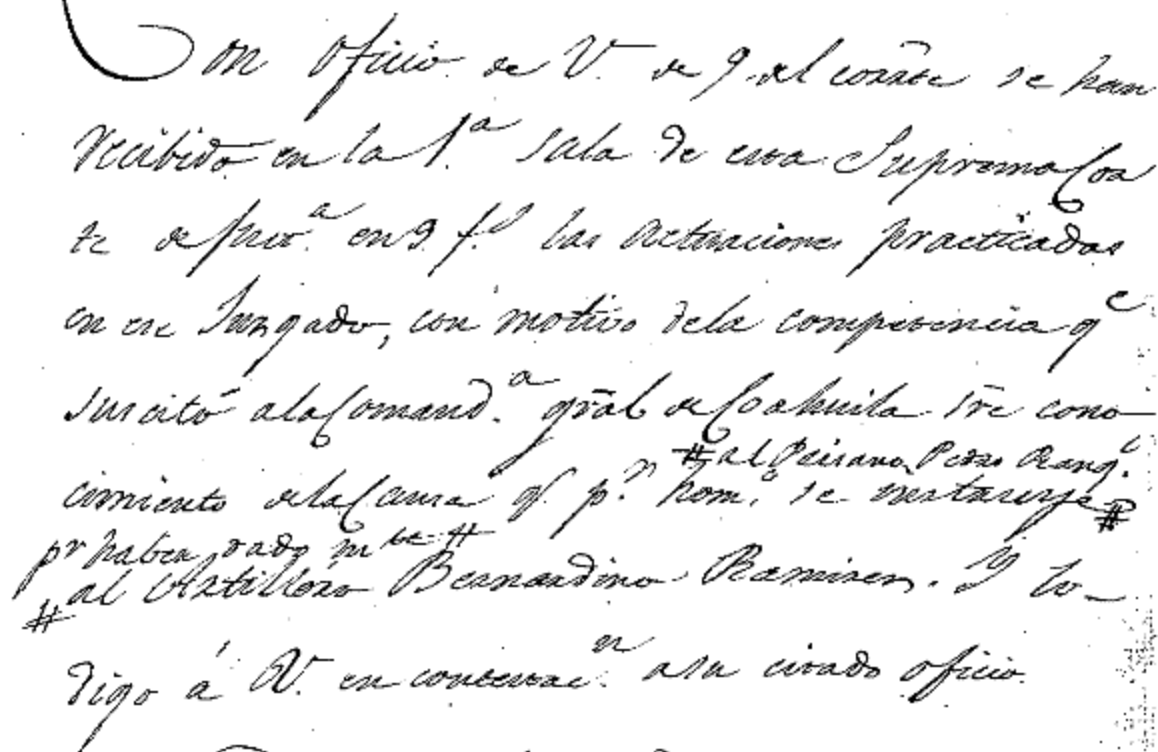 Con Oficio de V. de 9 del corr̃te se han
recibido en la 1.ª Sala de esta Suprema Cor
te de just.ª en 9 f.s las actuaciones practicadas
en ese Juzgado, con motivo dela competencia q.e
suscitó ala Comand.ª gr̃al de Coahuila sr̃e cono
# al Peisano Pedro Rang.l
cimiento dela Causa q.e p.r hom.o se instaruye #
pr haber dado m te #
# al Artillero Bernardino Ramires. Y lo
digo á V. en contestac.n asu citado oficio.